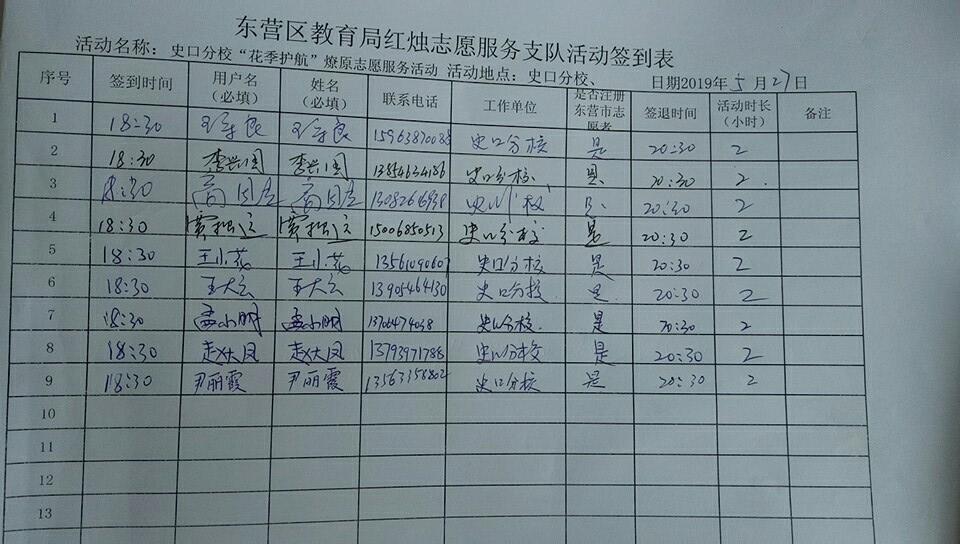 东营区教育局红烛志愿服务支队活动签到表
活动名称：史口分校“花季护航”燎原志愿服务活动 活动地点：史口分校、 日期2019年5月27日
序号 签到时间 用户名（必填） 姓名（必填） 联系电话 工作单位 是否注册东营市志愿者 签退时间 活动时长（小时） 备注
1 18:30 史口分校 是 20:30 2
2 18:30 李兴国 李兴国 13854634186 史口分校 是 20:30 2
3 18:30 20:30 2
4 18:30 15006850513 史口分校 是 20:30 2
5 18:30 王小花 王小花 13561090607 史口分校 是 20:30 2
6 18:30 王大云 王大云 13905464130 史口分校 是 20:30 2
7 18:30 孟小明 孟小明 史口分校 是 20:30 2
8 18:30 赵大凤 赵大凤 13793971788 史口分校 是 20:30 2
9 18:30 尹丽霞 尹丽霞 13563358802 史口分校 是 20:30 2
10
11
12
13